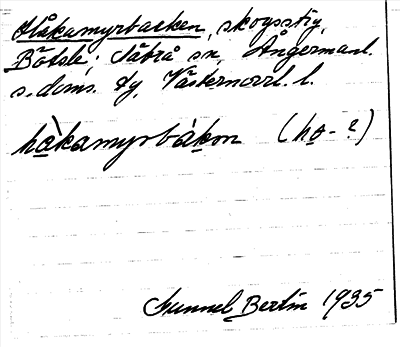 Håkamyrbacken, skogsstig,
Bölsle; Säbrå sn, Ångermanl.
s. doms. fg, Västernorrl. l.
hàkamyrbàkon (ho-?)
Gunnel Berlin 1935